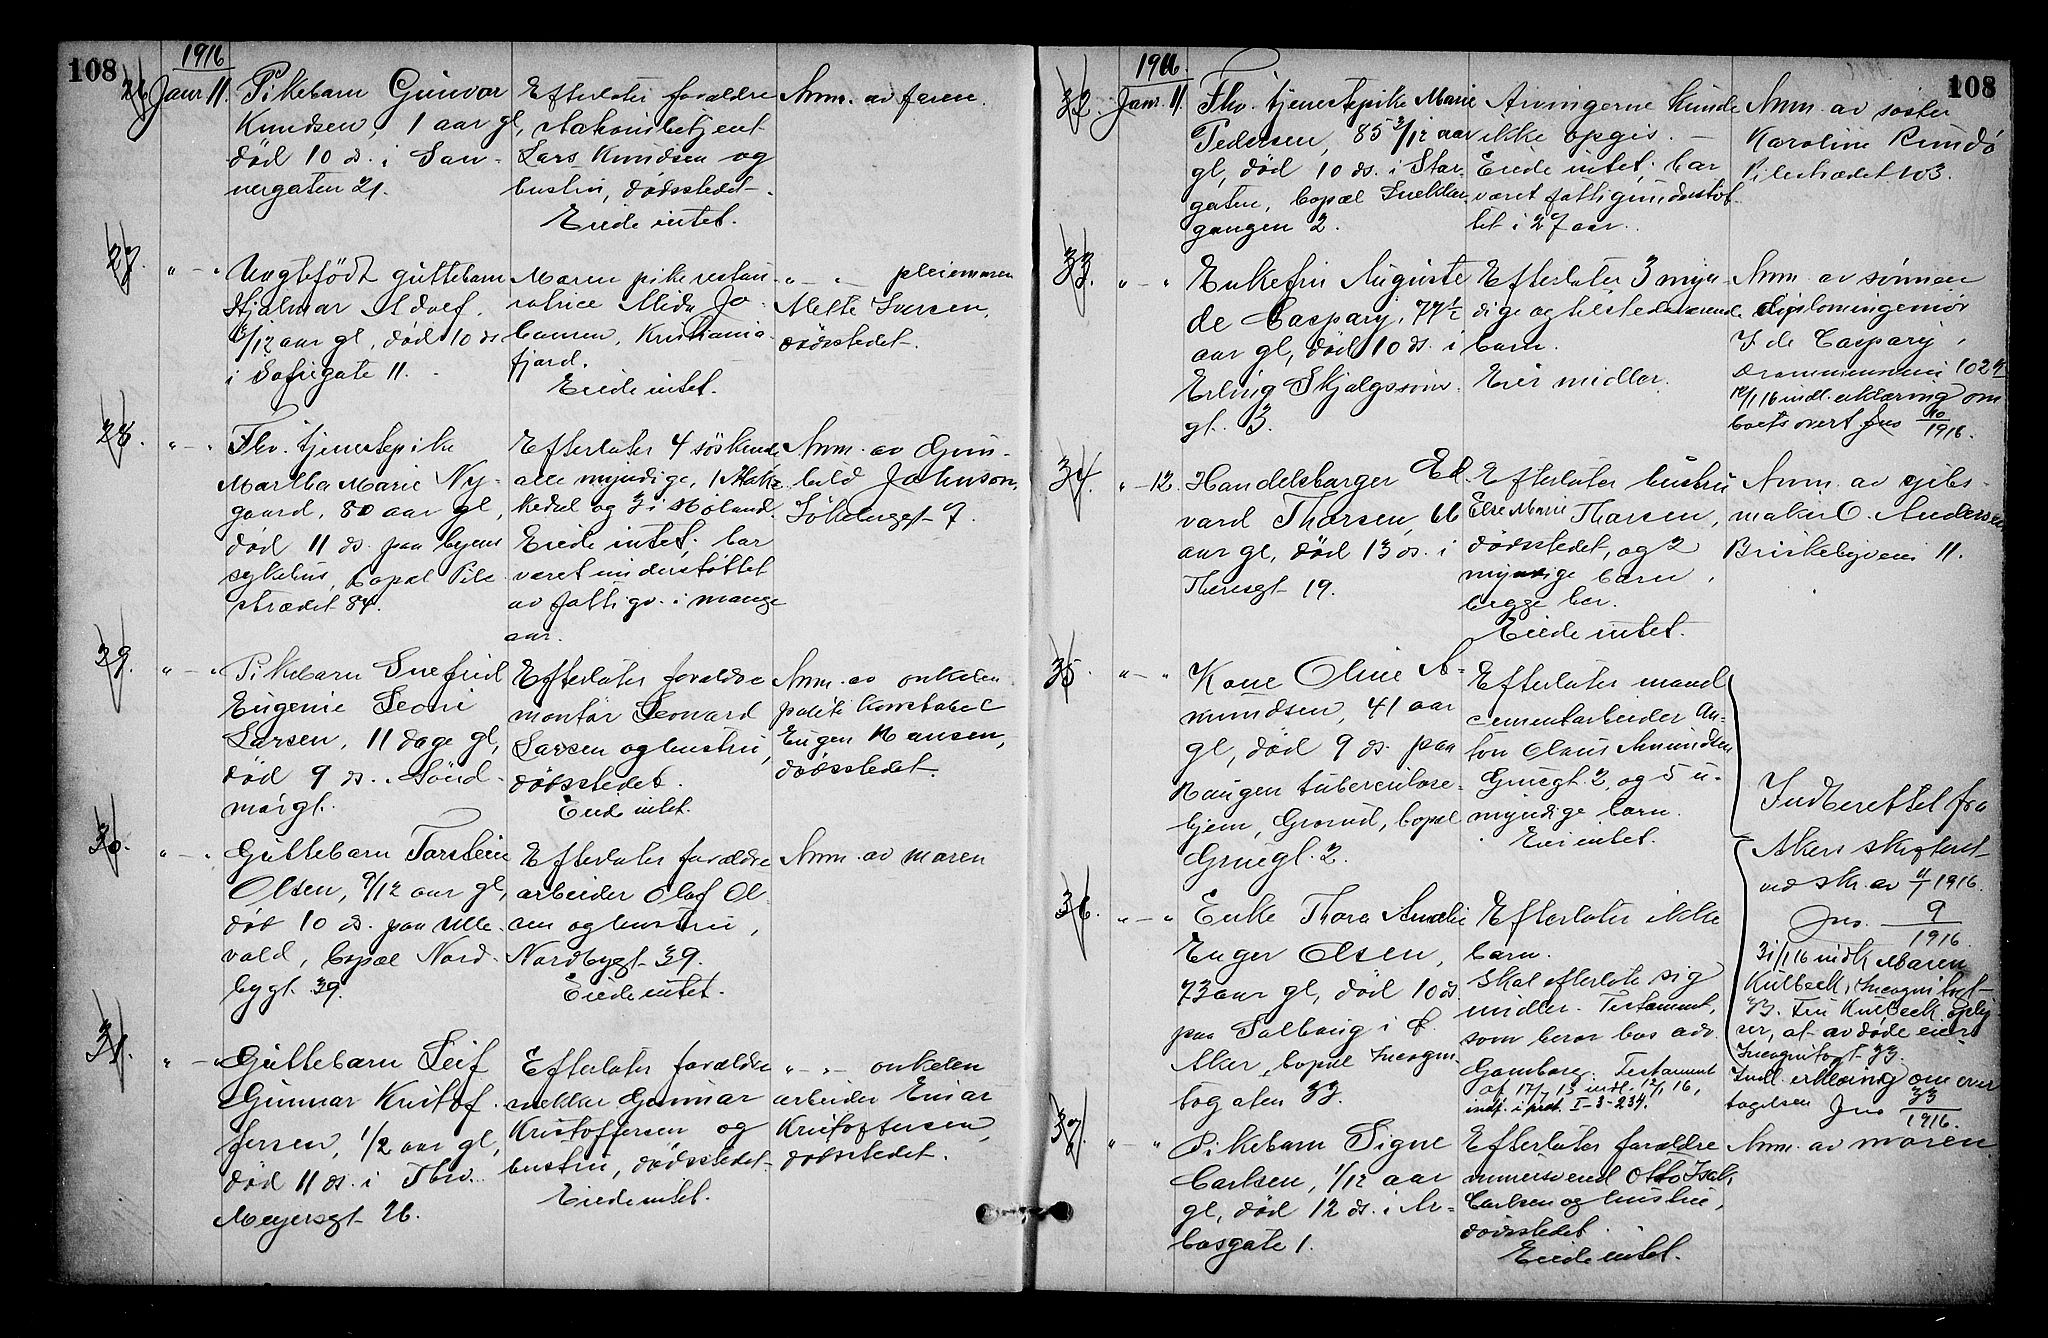 108
1916
26 Janr 11.
Pikebarn Gunvor
Knudsen, 1 aar gl,
død 10 ds. i San-
nergaten 21.
Efterlater forældre
stationsbetjent
Lars Knudsen og
hustru, dødsstedet.
Eiede intet.
Anm. av faren.
27. " - "
Uegtefødt guttebarn
Hjalmar Adolf,
/12 aar gl, død 10 ds
i Sofiegate 11.
Moren pike restau-
ratrice Mida Jo-
hansen, Kristiania-
fjord.
Eiede intet.
" - " pleiemoren
Mette Iversen,
dødsstedet.
28. " - "
Fhv. tjenestepike
Martha Marie Ny-
gaard, 80 aar gl,
død 11 ds. paa byens
sykehus, bopæl Pile-
strædet 84.
Efterlater 4 søskende
alle myndige, 1
og 3 i Høland.
Eiede intet; har
været understøttet
av fattigv. i mange
aar.
Anm. av Gun-
hild Johnson,
7.
29. " - "
Pikebarn Snefrid
Eugenie Leoni
Larsen, 11 dage gl,
død 9 ds. Sønd-
mørgt.
Efterlater forældre
montør Leonard
Larsen og hustru,
dødsstedet.
Eiede intet.
Anm. av onkelen
politikonstabel
Eugen Hansen,
dødsstedet.
30. " - "
Guttebarn Torstein
Olsen, 9/12 aar gl,
død 10 ds. paa Ulle-
vold, bopæl Nord-
bygt. 39.
Efterlater forældre
arbeider Olaf Ol-
sen og hustru,
Nordbygt. 39.
Eiede intet.
Anm. av moren
31. " - "
Guttebarn Leif
Gunnar Kristof-
fersen, 1/2 aar gl,
død 11 ds. i Thv.
Meyersgt. 26.
Efterlater forældre
snekker Gunnar
Kristoffersen og
hustru, dødsstedet.
Eiede intet.
" - " onkelen
arbeider Einar
Kristoffersen,
dødsstedet.
108
1916.
32. Janr. 11.
Fhv. tjenestepike Marie
Pedersen, 85 3/12 aar
gl, død 10 ds. i Stor-
gaten, bopæl
gangen 2.
Arvingerne kunde
ikke opgis. -
Eiede intet; har
været fattigunderstøt-
tet i 27 aar.
Anm. av søster
Karoline Rundö
Pilestrædet 103.
33. " - "
Enkefru Auguste
de Caspary, 77 1/2
aar gl, død 10 ds. i
Erling Skjalgssøns-
gt. 3.
Efterlater 3 myn-
dige og tilstedeværende
barn.
Eier midler.
Anm. av sønnen
diplomingeniør
J. de Caspary,
Drammensvei 102
12/1 16 indl. erklæring om
boets overt. Jno 10/1916.
34. " - 12.
Handelsborger Ed-
vard Thorsen, 66
aar gl, død 13 ds. i
Theresgt. 19.
Efterlater hustru
Else Marie Thorsen,
dødsstedet, og 2
myndige barn,
begge her.
Eiede intet.
Anm. av gibs-
maker O. Andersen
Briskebyveien 11.
35. " - "
Kone Oline A-
mundsen, 41 aar
gl, død 9 ds. paa
Haugen tuberculose-
hjem, Grorud, bopæl
Gruegt. 2.
Efterlater mand
cementarbeider An-
ton Olaus Amundsen
Gruegt. 2, og 5 u-
myndige barn.
Eier intet.
Indberettet fra
Akers skifteret
ved skr. av 11/1 1916.
Jno. 9/1916.
36. " - "
Enke Thora Amalie
Enger Olsen,
73 aar gl, død 10 ds.
paa Solhaug i Ø.
Aker, bopæl Incogni-
togaten 33.
Efterlater ikke
barn.
Skal efterlate sig
midler. Testament,
som beror hos adv.
Gamborg. Testament
af 17/7 13 indl. 12/1 16,
indf. i prot. I-3-234.
31/1 16 indk. Maren
Kulbeck, Incognitogt.
33. Fru Kulbeck oply-
ser, at avdøde eier
Incognitogt. 33.
Indl. erklæring om over
tagelsen Jno 33/1916.
37. " - "
Pikebarn Signe
Carlsen, 1/12 aar
gl, død 12 ds. i Ar-
bosgate 1.
Efterlater forældre
murersvend Otto Isak
Carlsen og hustru,
dødsstedet.
Eiede intet.
Anm. av moren